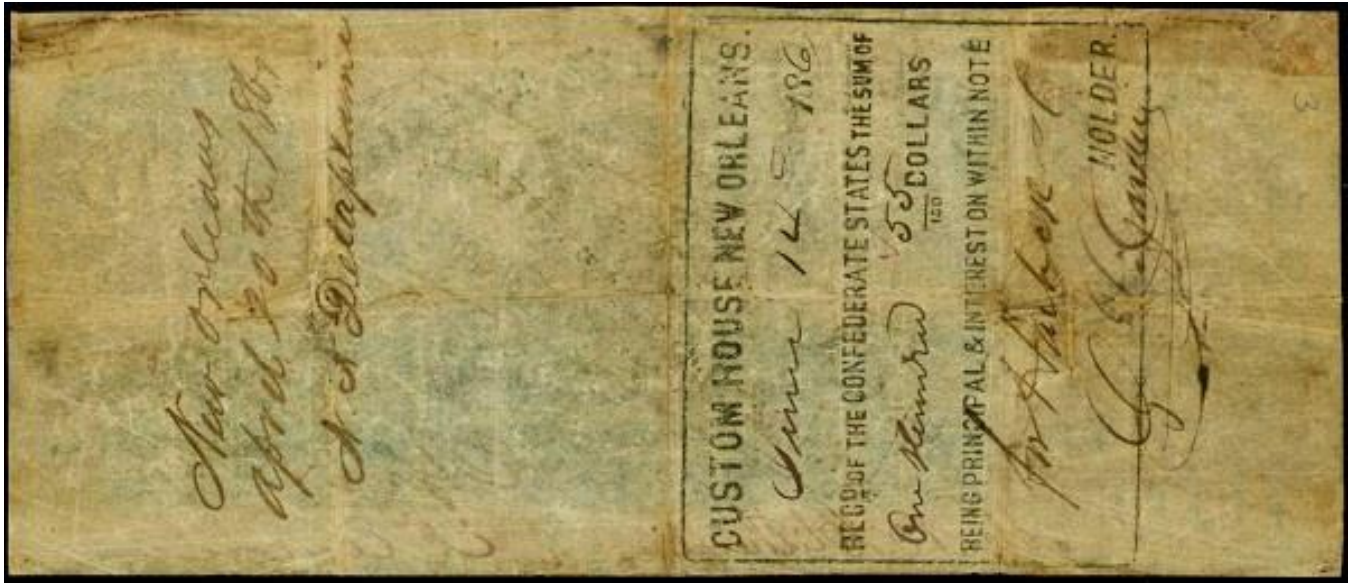 New orleans
april 20th 186
CUSTOM HOUSE NEW ORLEANS.
June 14 186
REC'D OF THE CONFEDERATE STATES THE SUM OF
One Hundred 55/100 DOLLARS
BEING PRINCIPAL & INTEREST ON WITHIN NOTE
HOLDER.
3